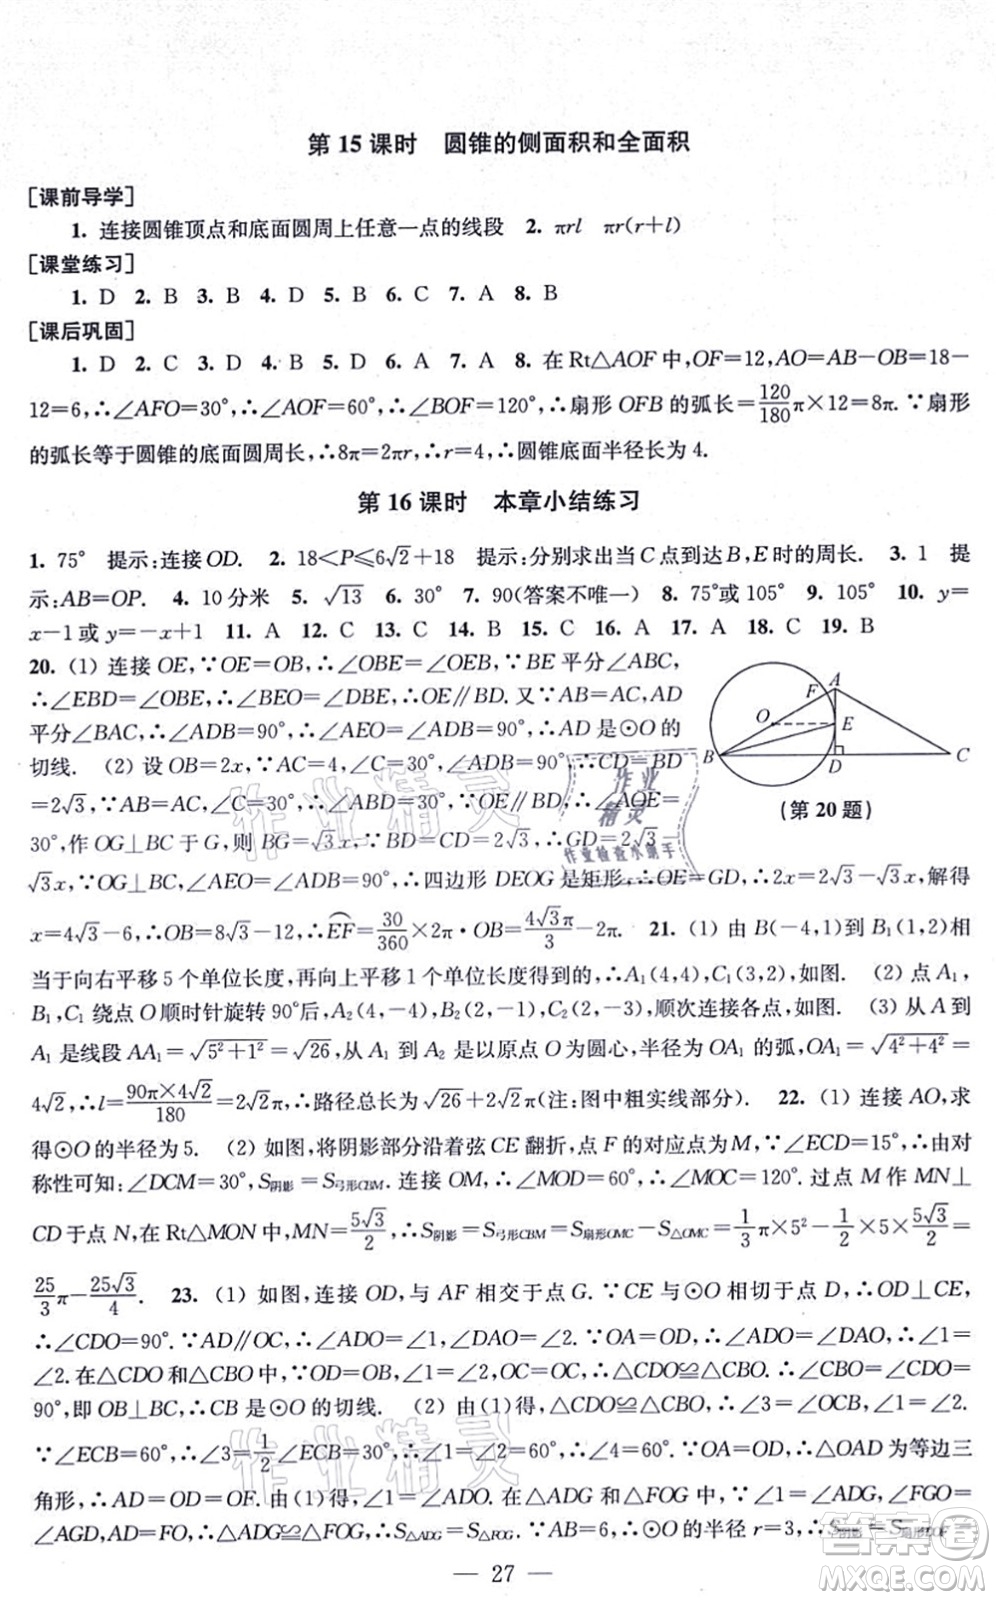 第15课时 圆锥的侧面积和全面积
[课前导学]
1. 连接圆锥顶点和底面圆周上任意一点的线段 2. πrl πr(r+l)
[课堂练习]
1. D 2. B 3. B 4. D 5. B 6. C 7. A 8. B
[课后巩固]
1. D 2. C 3. D 4. B 5. B 6. A 7. A 8. 在Rt△AOF中,OF=12,AO=AB-OB=18-
12=6,∴∠AFO=30°,∴∠AOF=60°,∴∠BOF=120°,∴扇形OFB的弧长=120/180π×12=8π.∵扇形
的弧长等于圆锥的底面圆周长,∴8π=2πr,∴r=4,∴圆锥底面半径长为4.
第16课时 本章小结练习
1. 75° 提示:连接OD. 2. 18<P≤6√2+18 提示:分别求出当C点到达B,E时的周长. 3. 1 提
示:AB=OP. 4. 10分米 5. √13 6. 30° 7. 90(答案不唯一) 8. 75°或105° 9. 105° 10. y=
x-1或y=-x+1 11. A 12. C 13. C 14. B 15. C 16. A 17. A 18. C 19. B
20. (1) 连接OE,∵OE=OB,∴∠OBE=∠OEB,∵BE平分∠ABC,
∴∠EBD=∠OBE,∴∠BEO=∠DBE,∴OE∥BD.又∵AB=AC,AD
平分∠BAC,∴∠ADB=90°,∴∠AEO=∠ADB=90°,∴AD是⊙O的
切线. (2) 设OB=2x,∵AC=4,∠C=30°,∴CD=BD
=2√3,∵AB=AC,∠C=30°,∴∠ABD=30°,∵OE∥BD,∴∠AOE=
30°,作OG⊥BC于G,则BG=√3x,∵BD=CD=2√3,∴GD=2√3-
√3x,∵OG⊥BC,∠AEO=∠ADB=90°,∴四边形DEOG是矩形,∴OE=GD,∴2x=2√3-√3x,解得
x=4√3-6,∴OB=8√3-12,∴EF⌒=30/360×2π·OB=4√3π/3-2π. 21. (1) 由B(-4,1)到B₁(1,2)相
当于向右平移5个单位长度,再向上平移1个单位长度得到的,∴A₁(4,4),C₁(3,2),如图. (2) 点A₁,
B₁,C₁绕点O顺时针旋转90°后,A₂(4,-4),B₂(2,-1),C₂(2,-3),顺次连接各点,如图. (3) 从A到
A₁是线段AA₁=√(5²+1²)=√26,从A₁到A₂是以原点O为圆心,半径为OA₁的弧,OA₁=√(4²+4²)=
4√2,∴l=90π×4√2/180=2√2π,∴路径总长为√26+2√2π(注:图中粗实线部分). 22. (1) 连接AO,求
得⊙O的半径为5. (2) 如图,将阴影部分沿着弦CE翻折,点F的对应点为M,∵∠ECD=15°,∴由对
称性可知:∠DCM=30°,S阴影=S弓形CBM.连接OM,∴∠MOD=60°,∴∠MOC=120°.过点M作MN⊥
CD于点N,在Rt△MON中,MN=5√3/2,∴S阴影=S弓形CBM=S扇形OMC-S△OMC=1/3π×5²-1/2×5×5√3/2=
25/3π-25√3/4. 23. (1) 如图,连接OD,与AF相交于点G.∵CE与⊙O相切于点D,∴OD⊥CE,
∴∠CDO=90°.∵AD∥OC,∴∠ADO=∠1,∠DAO=∠2.∵OA=OD,∴∠ADO=∠DAO,∴∠1=
∠2.在△CDO和△CBO中,∵OD=OB,∠1=∠2,OC=OC,∴△CDO≌△CBO.∴∠CBO=∠CDO=
90°,即OB⊥BC,∴CB是⊙O的切线. (2) 由(1)得,△CDO≌△CBO,∴∠3=∠OCB,∠1=∠2.
∵∠ECB=60°,∴∠3=1/2∠ECB=30°,∴∠1=∠2=60°,∴∠4=60°.∵OA=OD,∴△OAD为等边三
角形,∴AD=OD=OF.由(1)得,∠1=∠ADO.在△ADG和△FOG中,∵∠1=∠ADG,∠FGO=
∠AGD,AD=FO,∴△ADG≌△FOG.∴S△ADG=S△FOG.∵AB=6,∴⊙O的半径r=3,∴S阴影=S扇形DOF=
F A O E B D C
(第20题)
— 27 —
作业精灵
作业精灵
作业精灵
作业检查小助手
答案圈
MXQE.COM